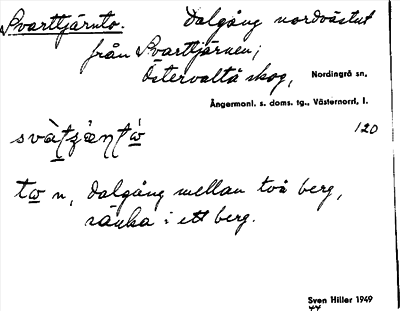 Svarttjärnto. Dalgång nordvästut
från Svarttjärnen;
Östervalta skog, Nordingrå sn,
Ångermanl. s. doms. tg., Västernorrl. l.
120
to n, dalgång mellan två berg,
sänka i ett berg.
Sven Hiller 1949
44